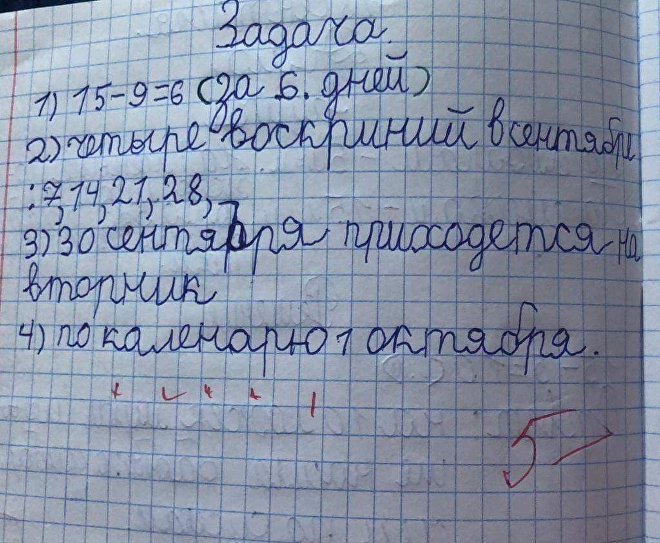 Задача.
1) 15-9=6 (за 6. дней)
2) четыре воскриний в сентябре
: 7, 14, 21, 28,
3) 30 сентября приходется на
вторник
4) по каленарю 1 октября.
5-